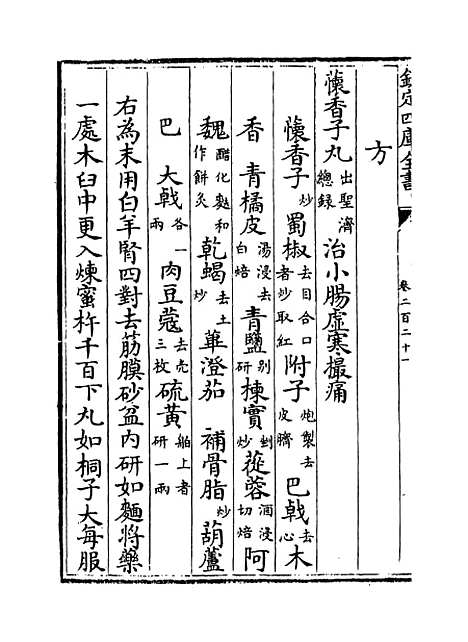 欽定四庫全書
卷二百二十一
方
懷香子丸出聖濟總錄治小腸虛寒撮痛
懷香子炒蜀椒去目合口者炒取紅附子炮製去皮臍巴戟去心木
香青橘皮湯浸去白焙青鹽别研楝實剉炒蓯蓉酒浸切焙阿
魏醋化麪和作餅炙乾蝎去土炒蓽澄茄補骨脂炒葫蘆
巴大戟各一兩肉豆蔻去壳三枚硫黄舶上者研一兩
右為末用白羊腎四對去筋膜砂盆内研如麵將藥
一處木臼中更入煉蜜杵千百下丸如桐子大每服